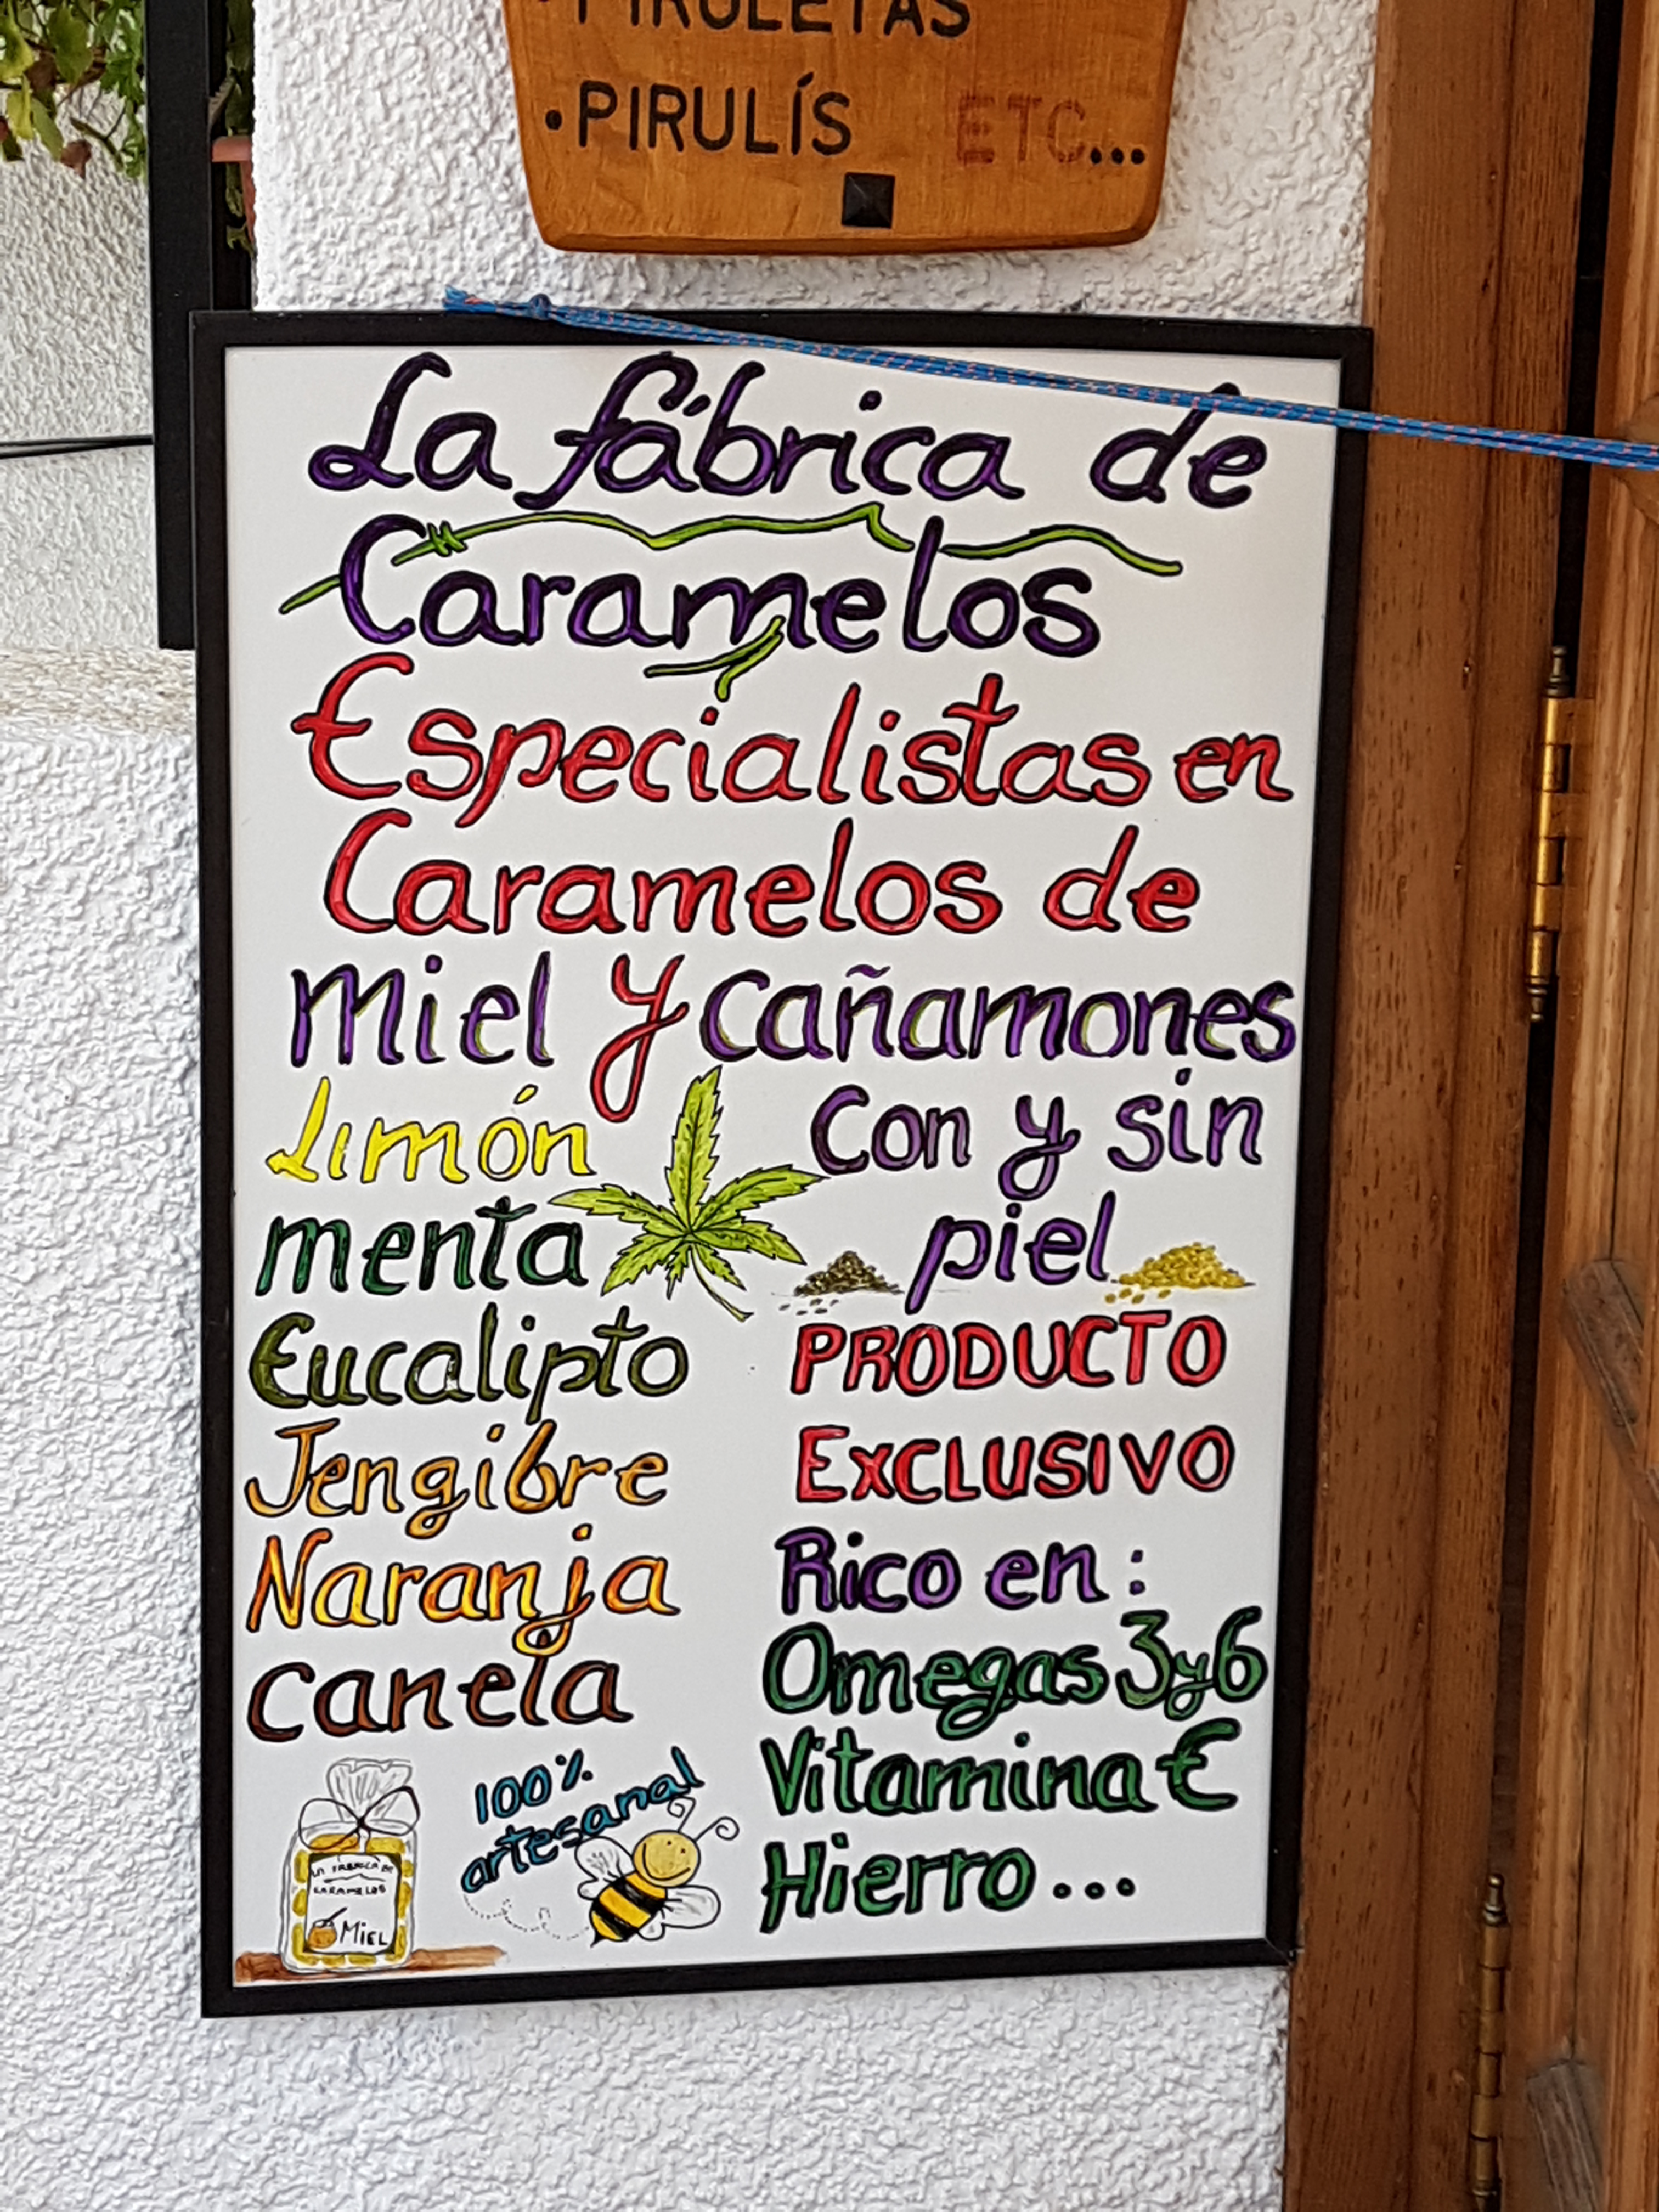 • PIRULETAS
• PIRULÍS ETC...
La fábrica de
Caramelos
Especialistas en
Caramelos de
Miel y Cañamones
Limón
menta
Eucalipto
Jengibre
Naranja
canela
Con y sin
piel
PRODUCTO
EXCLUSIVO
Rico en:
Omegas 3 y 6
Vitamina E
Hierro...
100%
artesanal
LA FABRICA DE
CARAMELOS
MIEL